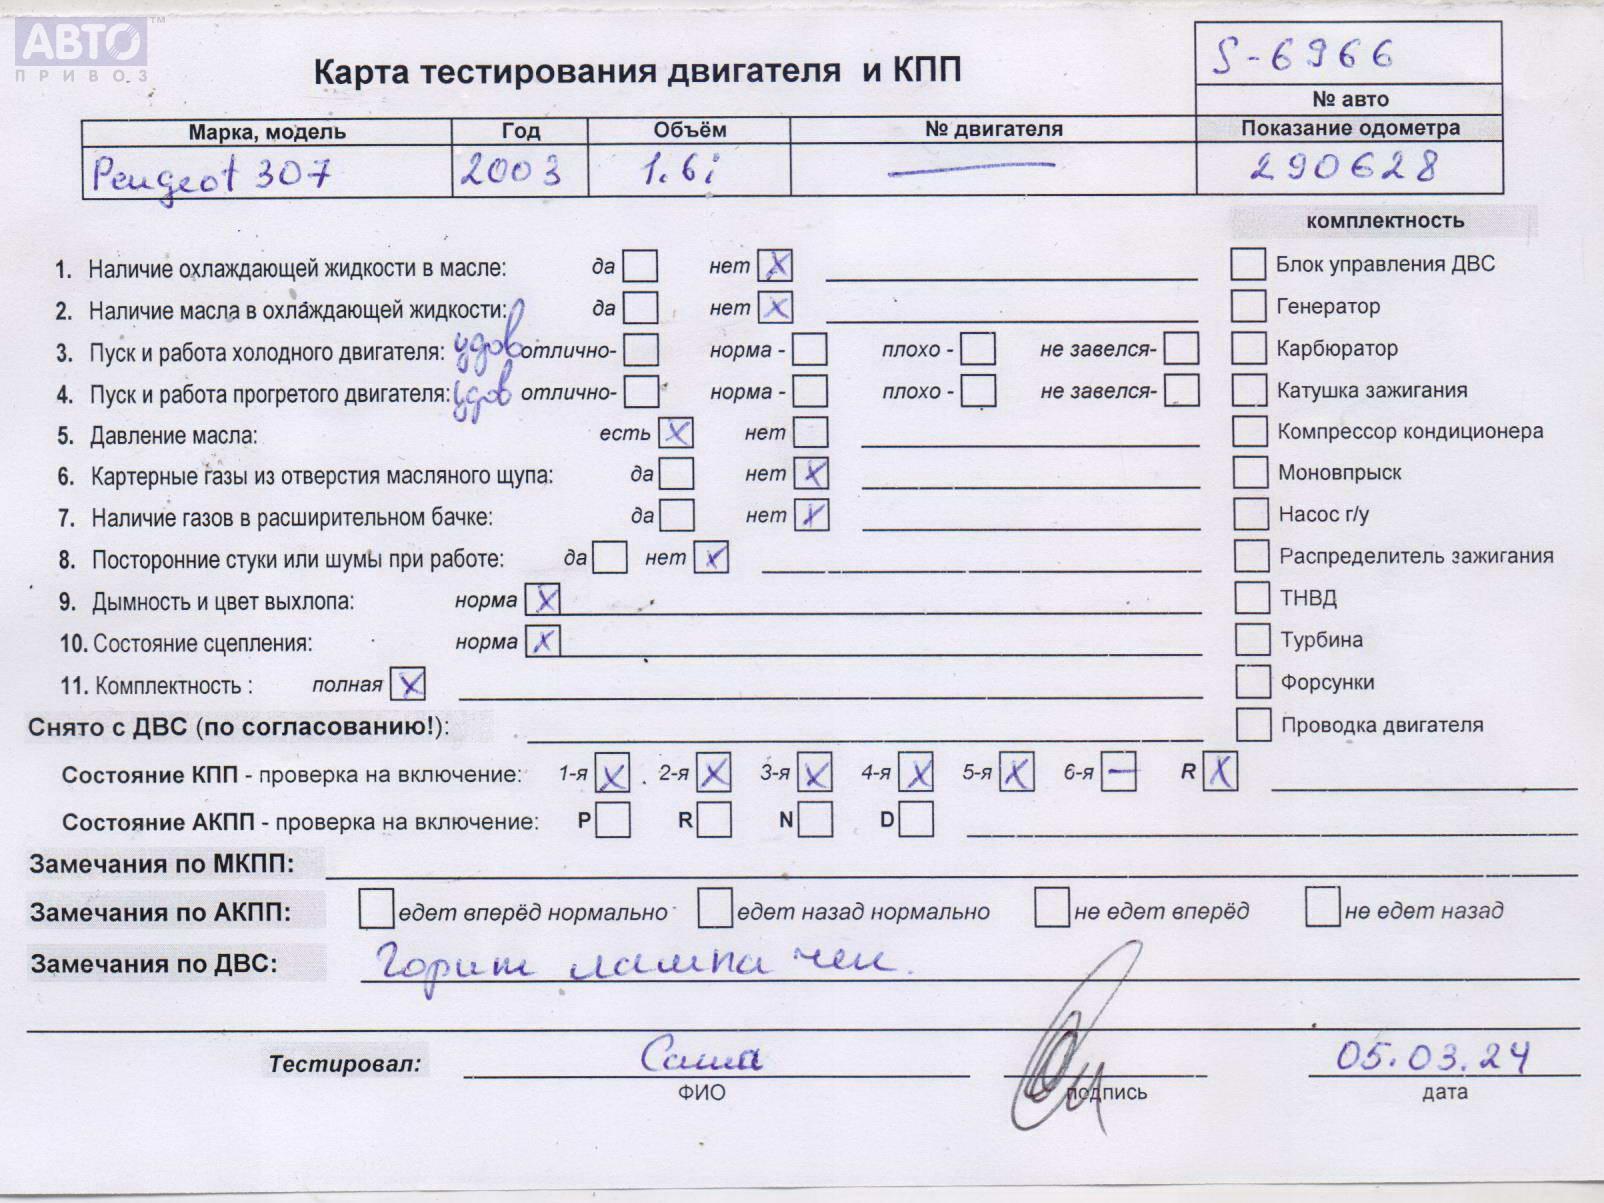 АВТО™
ПРИВОЗ
Карта тестирования двигателя и КПП
S-6966
№ авто
Марка, модель Год Объём № двигателя Показание одометра
Peugeot 307 2003 1.6i — 290628
комплектность
1. Наличие охлаждающей жидкости в масле: да нет X Блок управления ДВС
2. Наличие масла в охлаждающей жидкости: да нет X Генератор
3. Пуск и работа холодного двигателя: удов отлично- норма - плохо - не завелся- Карбюратор
4. Пуск и работа прогретого двигателя: удов отлично- норма - плохо - не завелся- Катушка зажигания
5. Давление масла: есть X нет Компрессор кондиционера
6. Картерные газы из отверстия масляного щупа: да нет X Моновпрыск
7. Наличие газов в расширительном бачке: да нет X Насос г/у
8. Посторонние стуки или шумы при работе: да нет X Распределитель зажигания
9. Дымность и цвет выхлопа: норма X ТНВД
10. Состояние сцепления: норма X Турбина
11. Комплектность : полная X Форсунки
Снято с ДВС (по согласованию!): Проводка двигателя
Состояние КПП - проверка на включение: 1-я X 2-я X 3-я X 4-я X 5-я X 6-я — R X
Состояние АКПП - проверка на включение: P R N D
Замечания по МКПП:
Замечания по АКПП: едет вперёд нормально едет назад нормально не едет вперёд не едет назад
Замечания по ДВС: Горит лампа чек.
Тестировал: Саша 05.03.24
ФИО подпись дата